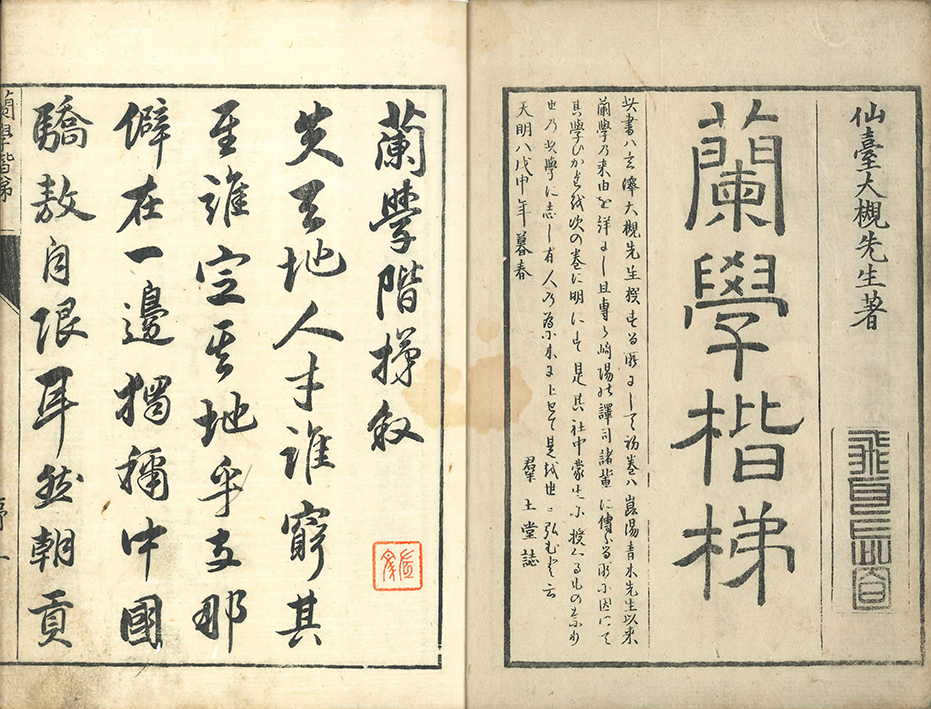 仙臺大槻先生著
蘭學楷梯
此書ハ玄澤大槻先生撰する所にして初巻ハ崑陽青木先生以来
蘭學の来由を詳にし且専ら崎陽の譯司諸輩に傳ふる所に因りて
其學びかたを次の巻に明にす是其社中蒙生に授くるものなり
也乃此學に志し有人の為に木に上せて是を世に弘むと云
天明八戊申年暮春 羣玉堂誌
蘭學階梯敘
夫天地人才誰窮其
至誰定其地乎支那
僻在一邊獨稱中國
驕敖自限耳然朝貢
蘭學階梯 序 一